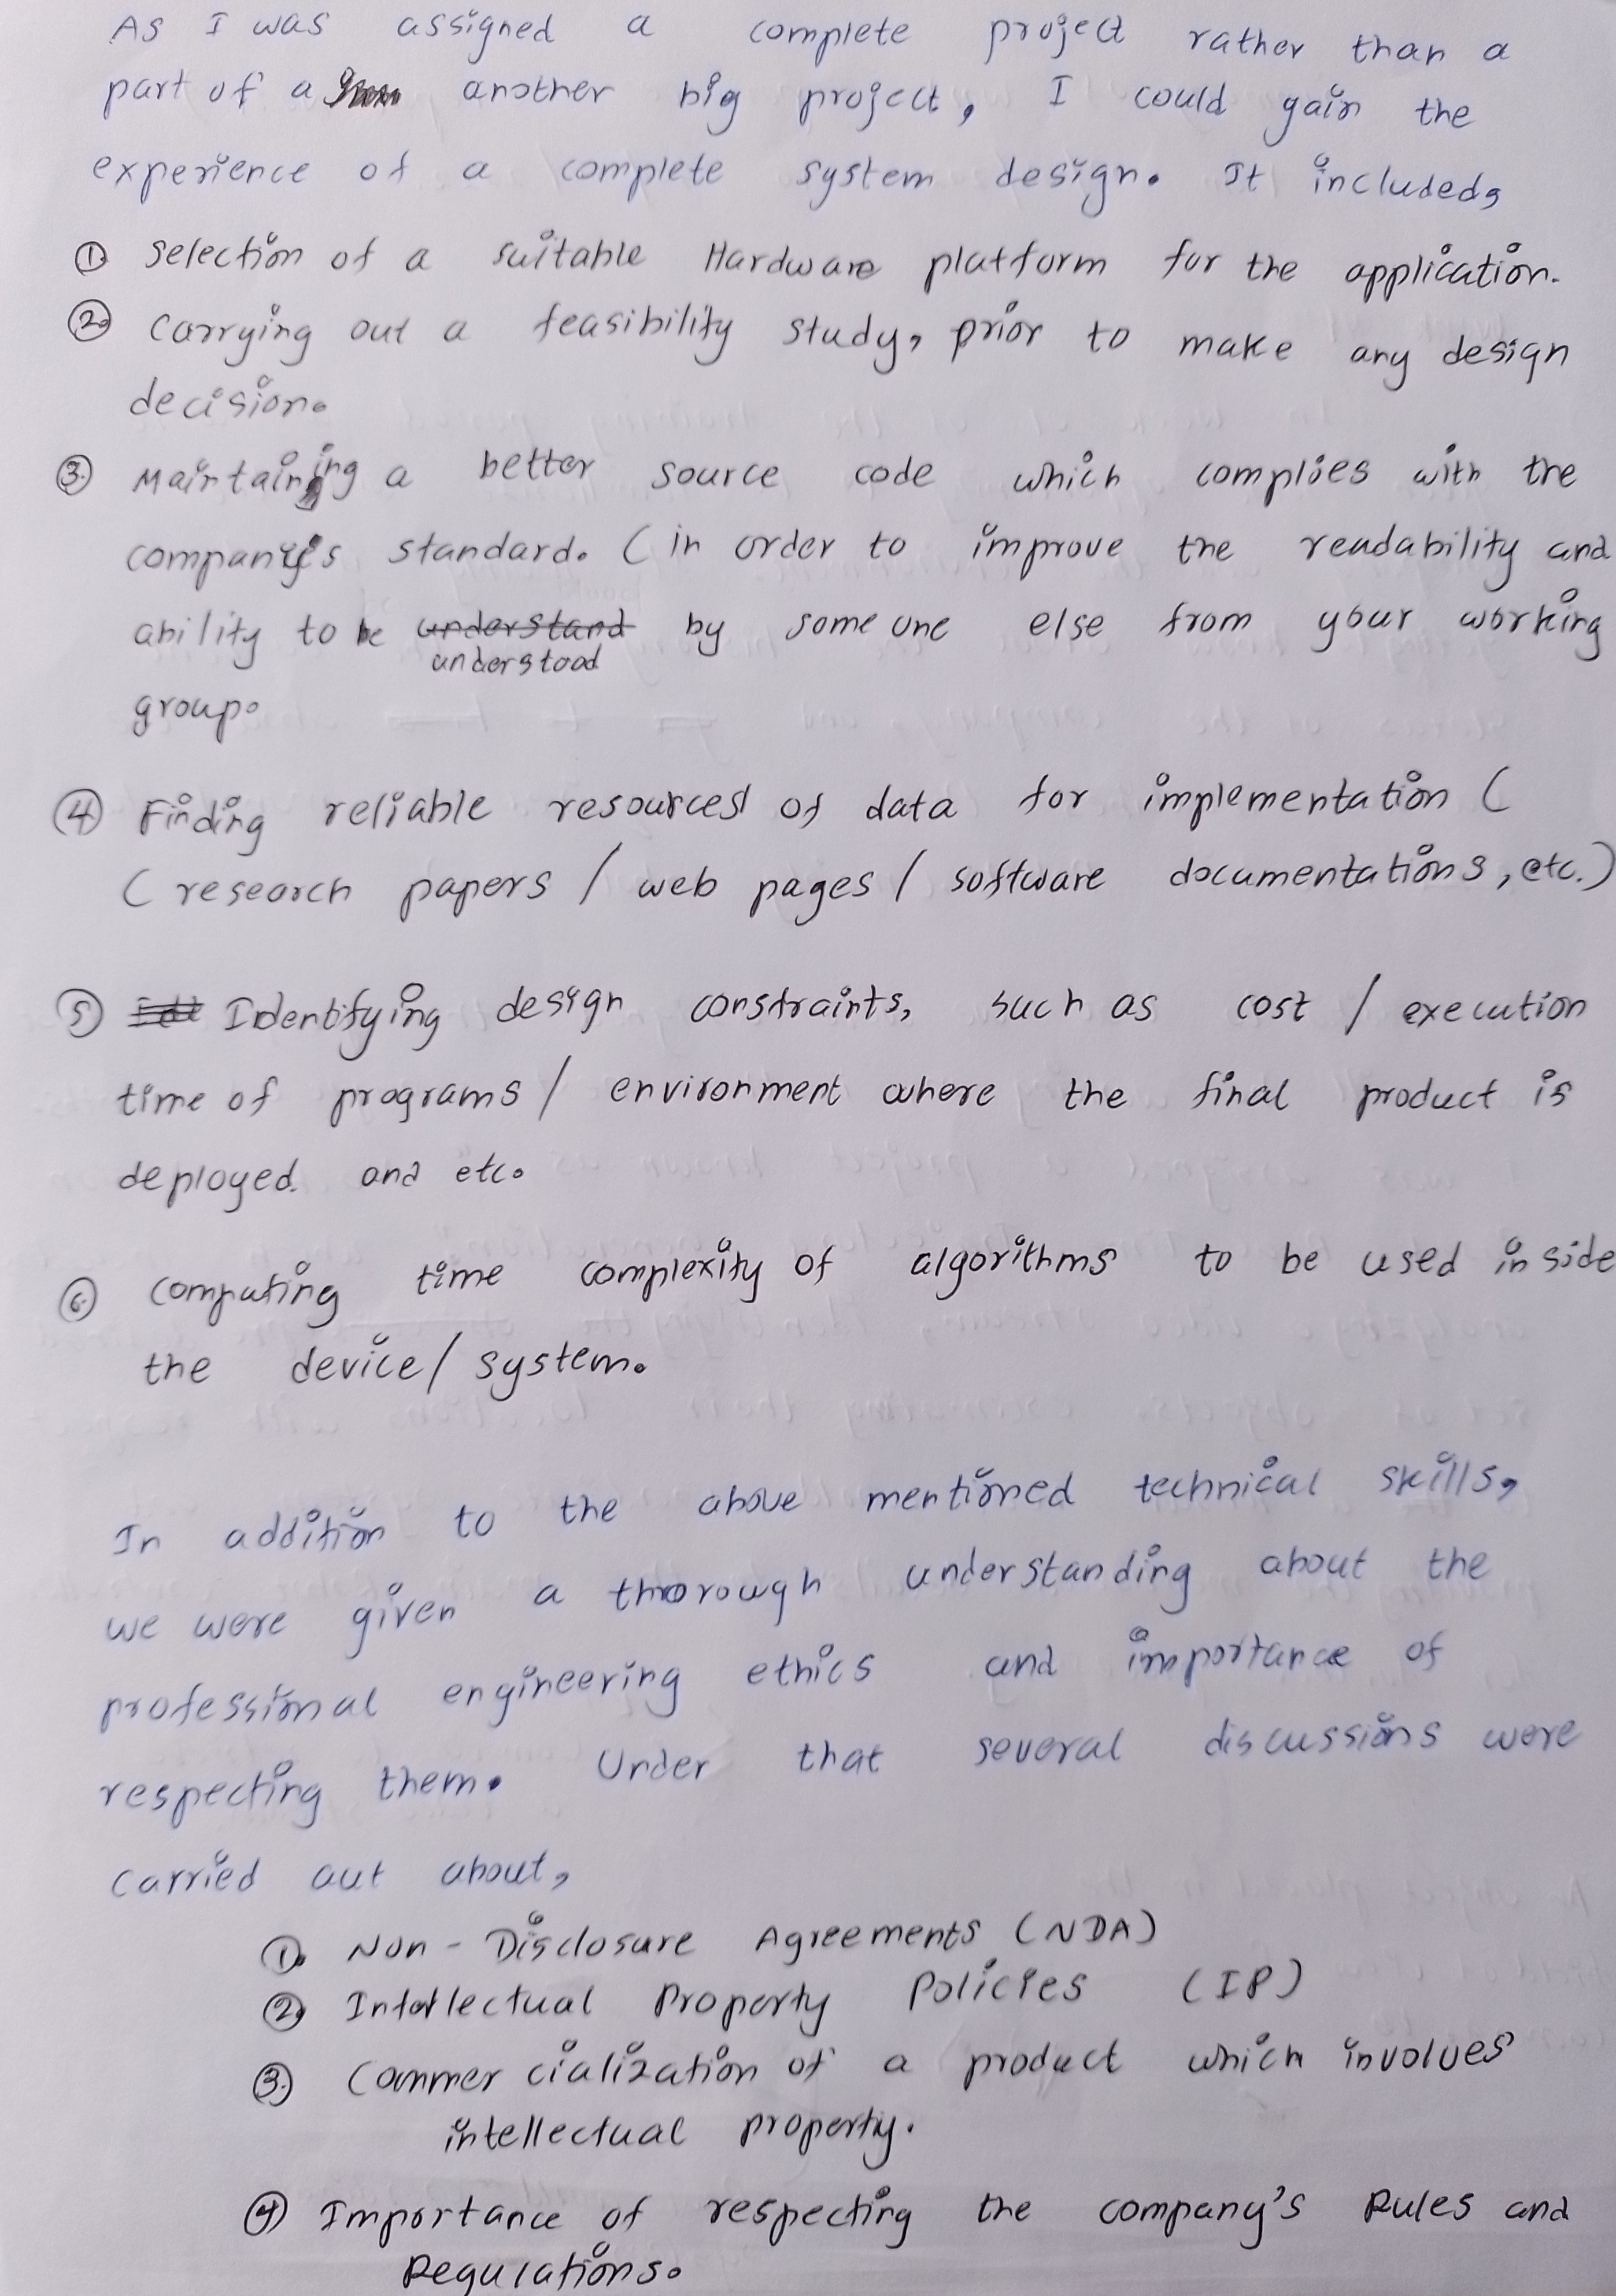 As I was assigned a complete project rather than a
part of a another big project, I could gain the
experience of a complete system design. It included,
① Selection of a suitable Hardware platform for the application.
② Carrying out a feasibility study, prior to make any design
decision.
③ Maintaining a better source code which complies with the
company's standard. (in order to improve the readability and
ability to be understand by some one else from your working
understood
group.
④ Finding reliable resources of data for implementation (
( research papers / web pages / software documentations, etc.)
⑤ Identifying design constraints, such as cost / execution
time of programs / environment where the final product is
deployed. and etc.
⑥ Computing time complexity of algorithms to be used inside
the device/ system.
In addition to the above mentioned technical skills,
we were given a thorough understanding about the
professional engineering ethics and importance of
respecting them. Under that several discussions were
carried out about,
①. Non - Disclosure Agreements (NDA)
② Intellectual Property Policies (IP)
③ Commercialization of a product which involves
intellectual property.
④ Importance of respecting the company's Rules and
Regulations.